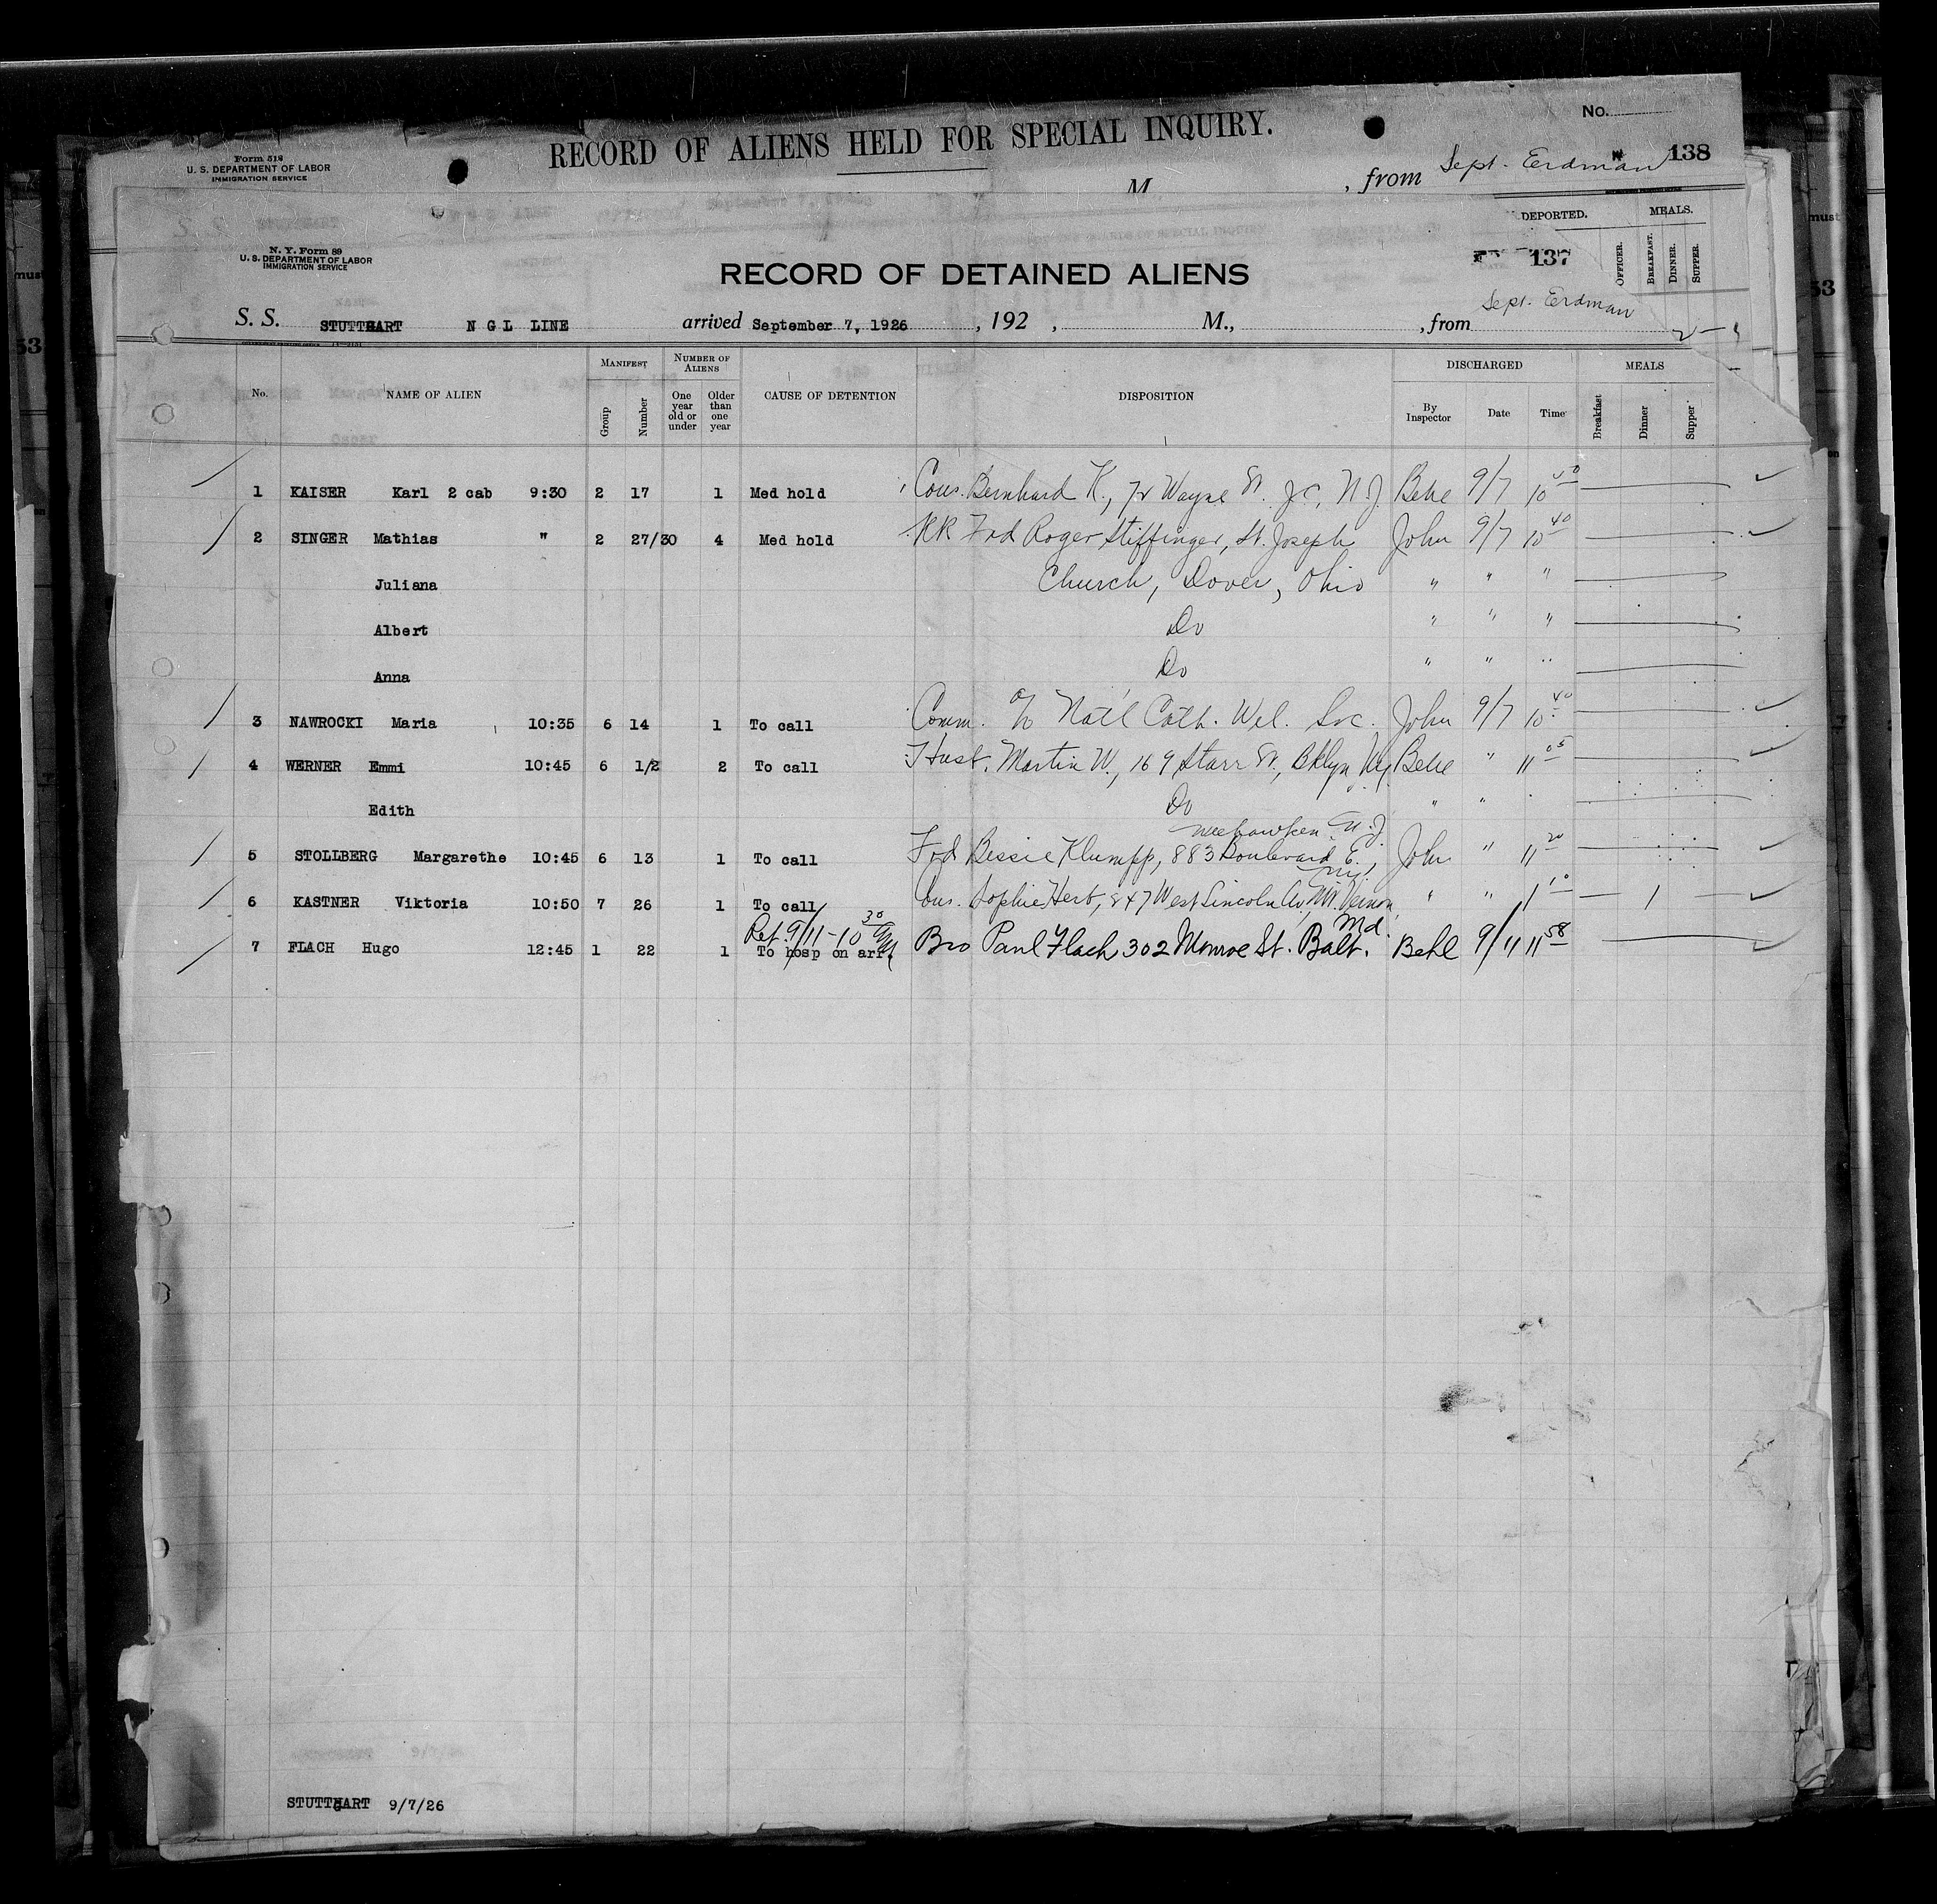 No.
Form 518
U. S. DEPARTMENT OF LABOR
IMMIGRATION SERVICE
RECORD OF ALIENS HELD FOR SPECIAL INQUIRY.
138
M , from Sept. Erdman
DEPORTED. MEALS.
OFFICER. BREAKFAST. DINNER. SUPPER.
137
N. Y. Form 89
U. S. DEPARTMENT OF LABOR
IMMIGRATION SERVICE
RECORD OF DETAINED ALIENS
S. S. STUTTGART N G L LINE arrived September 7, 1926 , 192 , M., , from Sept. Erdman
No. NAME OF ALIEN MANIFEST NUMBER OF ALIENS CAUSE OF DETENTION DISPOSITION DISCHARGED MEALS
Group Number One year old or under Older than one year By Inspector Date Time Breakfast Dinner Supper
1 KAISER Karl 2 cab 9:30 2 17 1 Med hold Cous. Bernhard K., 72 Wayne St. J.C., N.J. Behe 9/7 10
2 SINGER Mathias " 2 27/30 4 Med hold RR Frd Roger Stiffinger, St. Joseph John 9/7 10 40
Juliana Church, Dover, Ohio " " "
Albert Do " " "
Anna Do " " "
3 NAWROCKI Maria 10:35 6 14 1 To call Comm. c/o Nat'l Cath. Wel. Svc. John 9/7 10 40
4 WERNER Emmi 10:45 6 1/2 2 To call Husb. Martin W., 169 Starr St., Bklyn NY Behe " 11 05
Edith Do " "
Weehawken N.J.
5 STOLLBERG Margarethe 10:45 6 13 1 To call Frd Bessie Klumpp, 883 Boulevard E., John " 11 20
N.Y.
6 KASTNER Viktoria 10:50 7 26 1 To call Cous. Sophie Herb, 847 West Lincoln Av, Mt Vernon, " " 1 10 1
Ret. 9/11 - 10 30 AM Md.
7 FLACH Hugo 12:45 1 22 1 To hosp on arr. Bro Paul Flach 302 Monroe St. Balt. Behe 9/11 11 58
STUTTGART 9/7/26